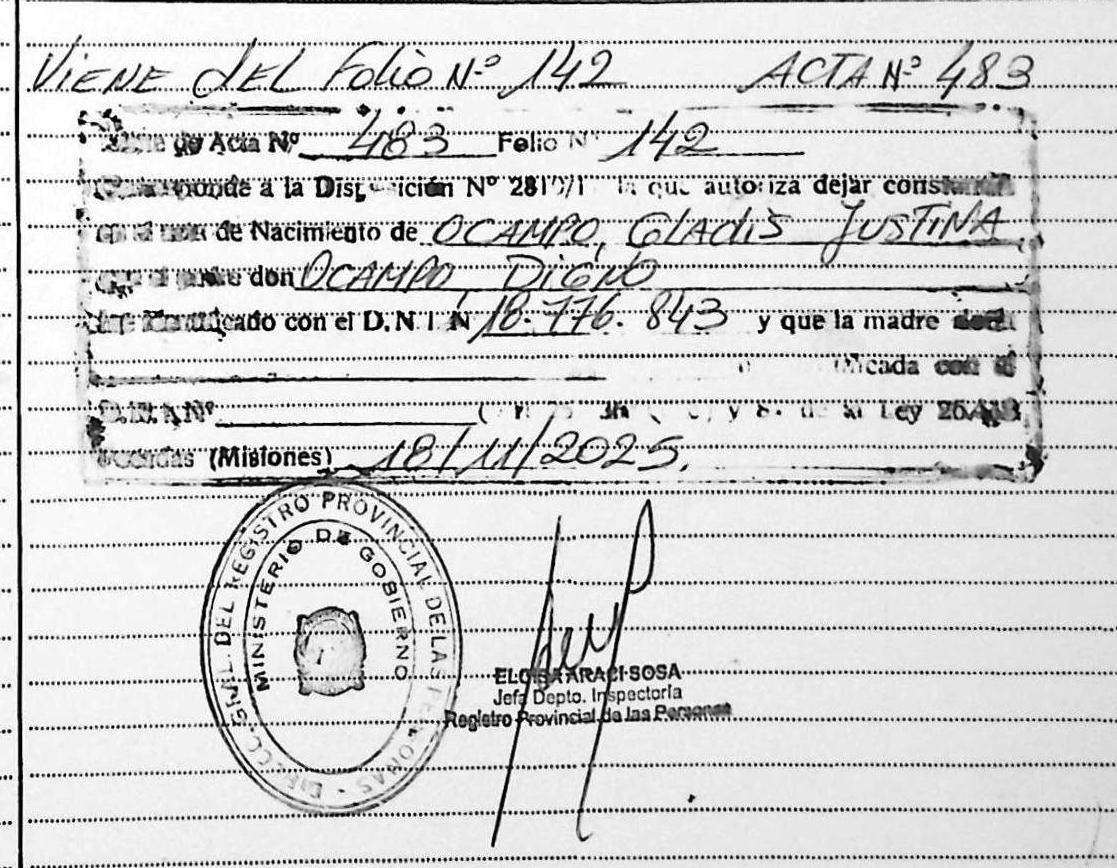 VIENE DEL Folio N-º 142 ACTA N-º 483
de Acta Nº 483 Folio Nº 142
a la Disposición Nº 2810/1 la que autoriza dejar
de Nacimiento de OCAMPO, GLADIS JUSTINA
don OCAMPO, DIGNO
con el D.N.I. N 18.776.843 y que la madre
con el
D.N.I. Nº y 8 de la Ley
(Misiones) 18/11/2025.
DIRECC. GRAL. DEL REGISTRO PROVINCIAL DE LAS PERSONAS
MINISTERIO DE GOBIERNO
ELOISA ARACI SOSA
Jefa Depto. Inspectoría
Registro Provincial de las Personas